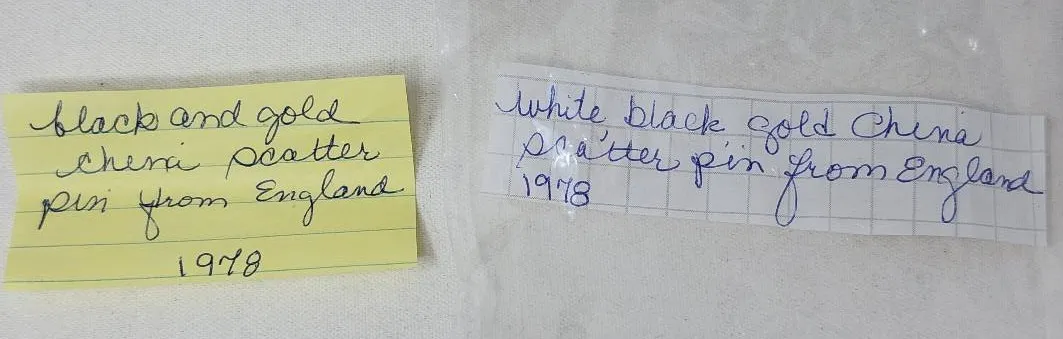 black and gold
china scatter
pin from England
1978
white black gold China
scatter pin from England
1978